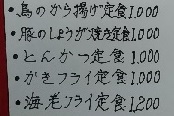 ・鳥のから揚げ定食1,000
・豚のしょうが焼き定食1,000
・とんかつ定食1,000
・かきフライ定食1,000
・海老フライ定食1,200